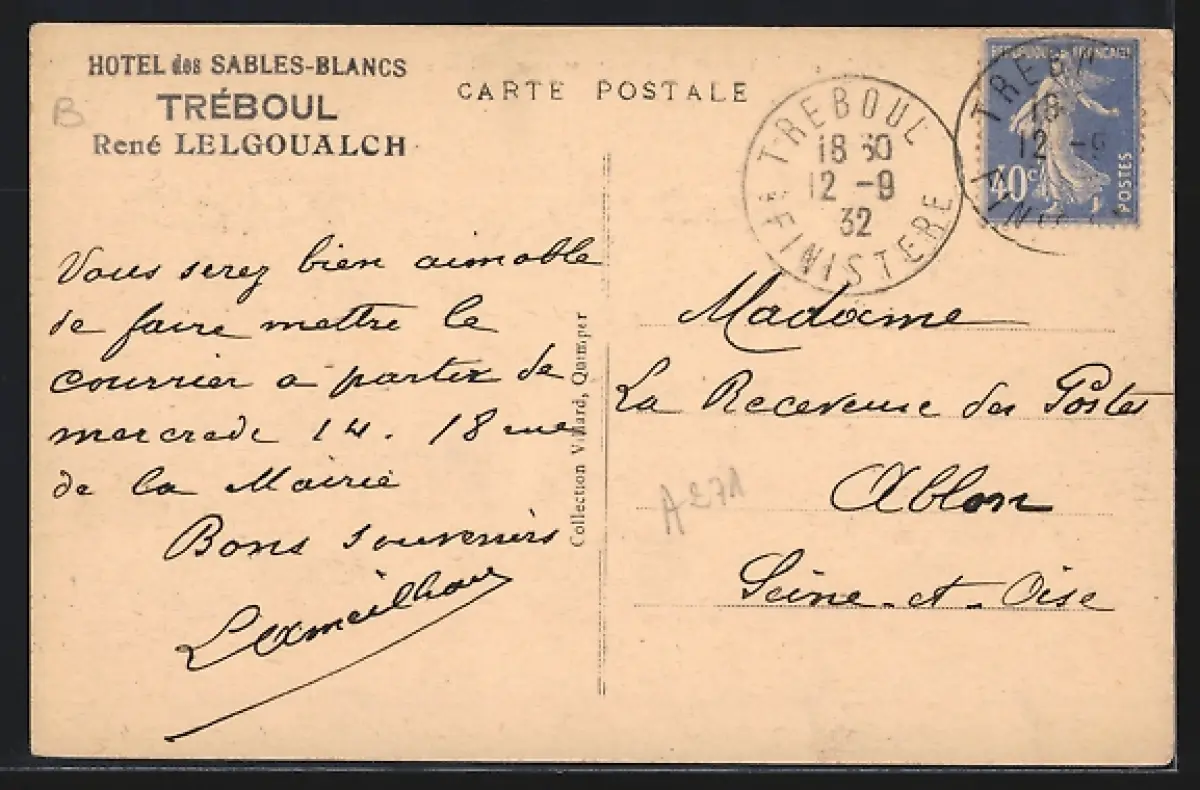 HOTEL des SABLES-BLANCS
TRÉBOUL
René LELGOUALCH
B
CARTE POSTALE
TREBOUL
18 30
12 -9
32
FINISTERE
REPUBLIQUE FRANÇAISE
40c
POSTES
TREBOU
18
12 -9
FINIS
Vous serez bien aimable
de faire mettre le
courrier a partir de
mercredi 14. 18 rue
de la Mairie
Bons souvenirs
Collection Villard, Quimper
Madame
La Receveuse des Postes
Ablon
Seine-et-Oise
A271